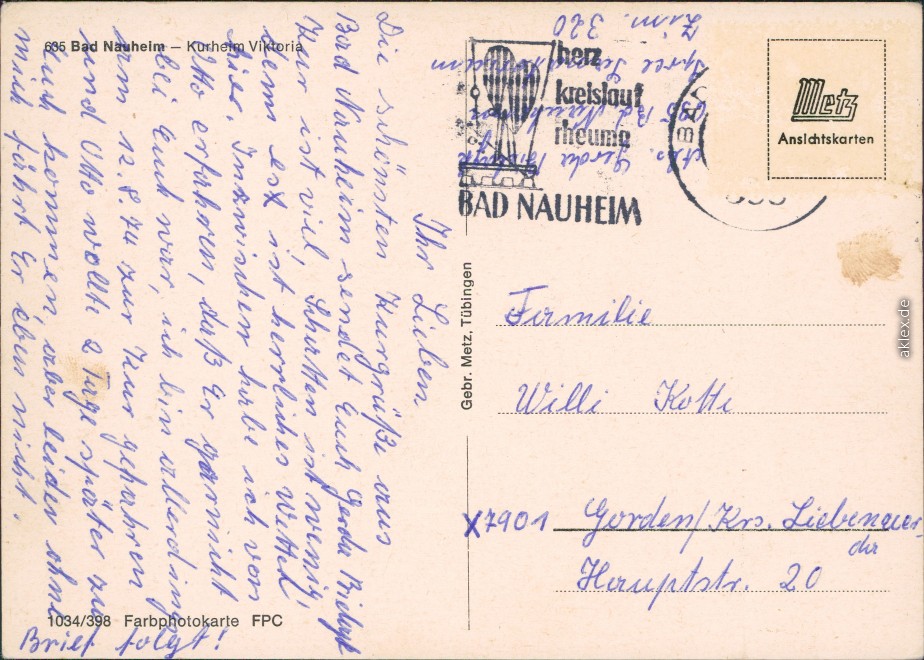 635 Bad Nauheim – Kurheim Viktoria
Ihr Lieben.
Die schönsten Kurgrüße aus
Bad Nauheim sendet Euch Gerda
Kur ist viel, Schatten ist wenig,
denn es ist herrliches Wetter
hier. Inzwischen habe ich von
Otto erfahren, daß Er garnicht
bei Euch war, ich bin allerdings
am 12.8.74 zur Kur gefahren
und Otto wollte 2 Tage später zu
Euch kommen, aber leider ohne
mich fährt Er eben nicht.
Brief folgt!
1034/398 Farbphotokarte FPC
Gebr. Metz, Tübingen
Abs. Gerda
635 Bad Nauheim
Zim. 320
herz
kreislauf
rheuma
BAD NAUHEIM
Metz
Ansichtskarten
Familie
Willi Kotte
X7901 Gorden/Krs. Liebenwer-
da
Hauptstr. 20
aklex.de